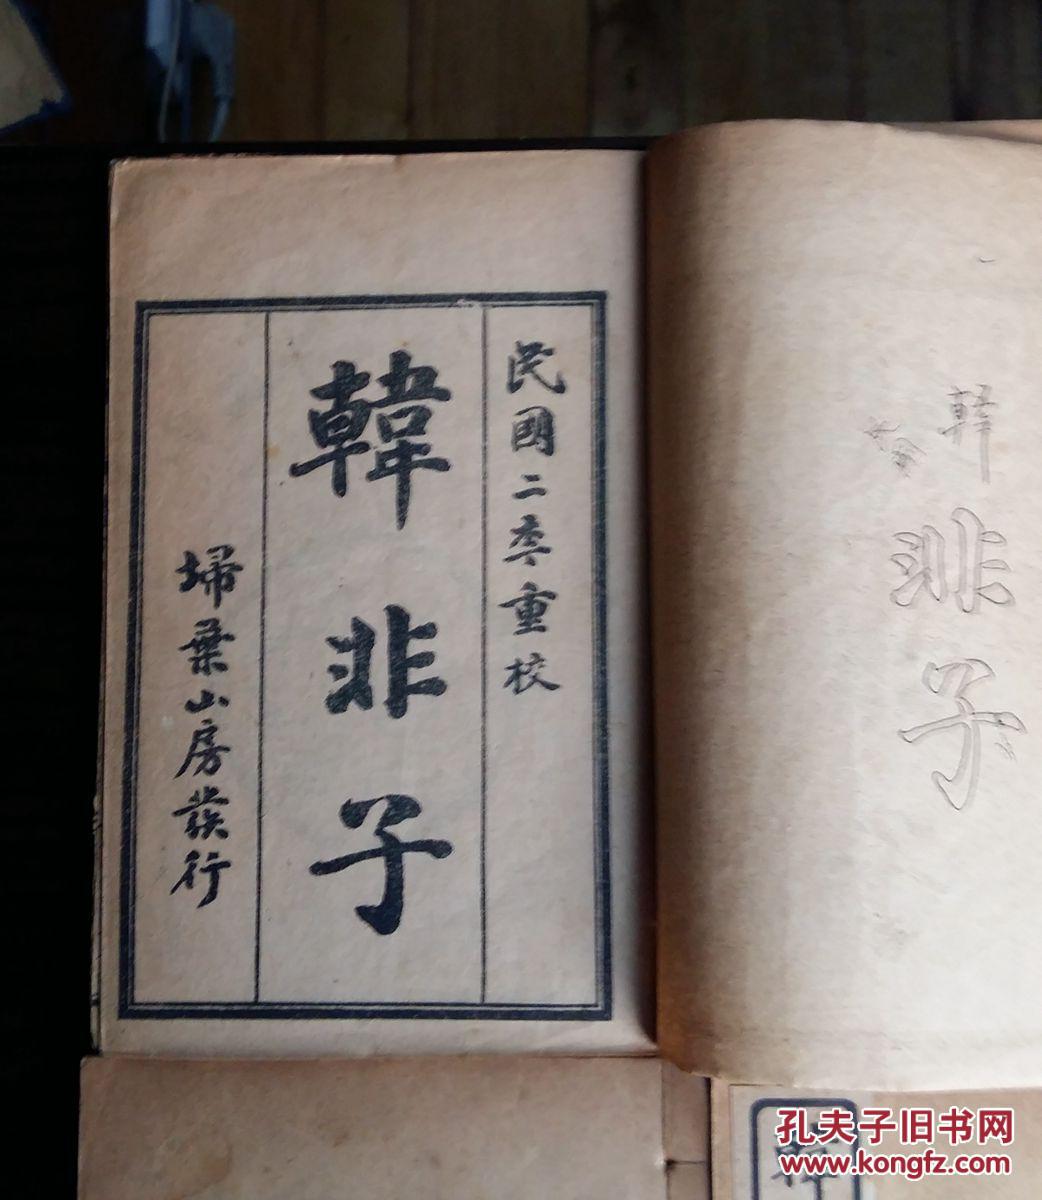 民國二年重校
韓非子
埽葉山房發行
韓
非
子
韓
孔夫子旧书网
www.kongfz.com